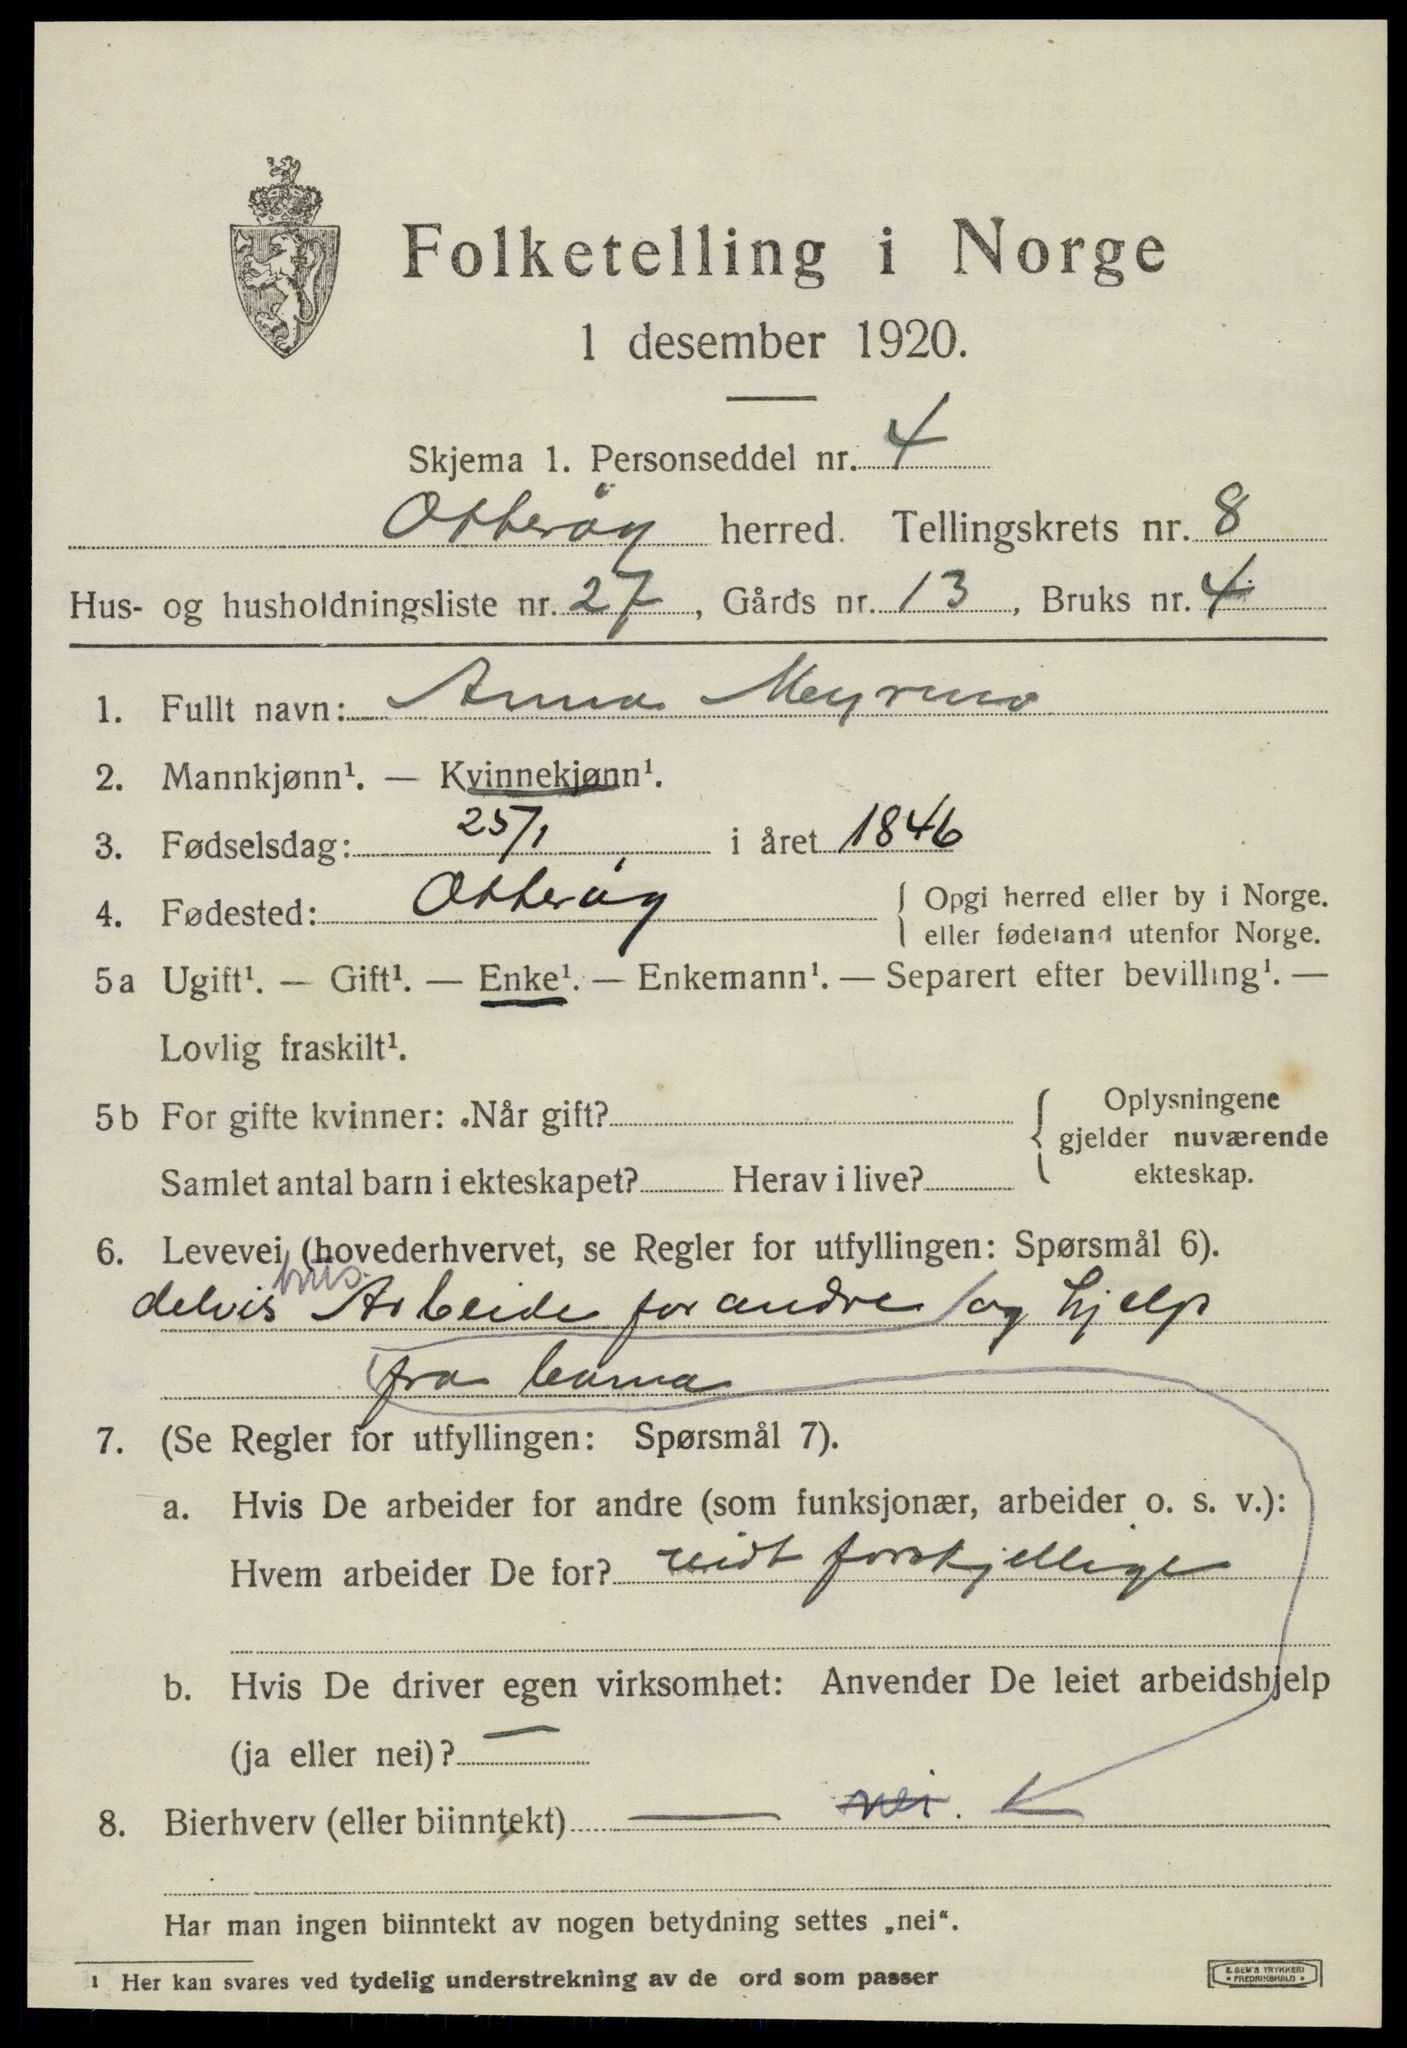 Folketelling i Norge
1 desember 1920.
Skjema 1. Personseddel nr. 4
Otterøy herred. Tellingskrets nr. 8
Hus- og husholdningsliste nr. 27, Gårds nr. 13, Bruks nr. 4
1. Fullt navn: Anna Meyrmo
2. Mannkjønn¹. — Kvinnekjønn¹.
3. Fødselsdag: 25/1 i året 1846
4. Fødested: Otterøy { Opgi herred eller by i Norge.
eller fødeland utenfor Norge.
5a Ugift¹. — Gift¹. — Enke¹. — Enkemann¹. — Separert efter bevilling¹. —
Lovlig fraskilt¹.
5b For gifte kvinner: Når gift? { Oplysningene
gjelder nuværende
Samlet antal barn i ekteskapet? Herav i live? ekteskap.
6. Levevei (hovederhvervet, se Regler for utfyllingen: Spørsmål 6).
delvis Arbeide for andre og hjelp
fra barna
7. (Se Regler for utfyllingen: Spørsmål 7).
a. Hvis De arbeider for andre (som funksjonær, arbeider o. s. v.):
Hvem arbeider De for? vidt forskjellige
b. Hvis De driver egen virksomhet: Anvender De leiet arbeidshjelp
(ja eller nei)? —
8. Bierhverv (eller biinntekt) — nei.
Har man ingen biinntekt av nogen betydning settes „nei“.
¹ Her kan svares ved tydelig understrekning av de ord som passer
E. SEM'S TRYKKERI
• FREDRIKSHALD •